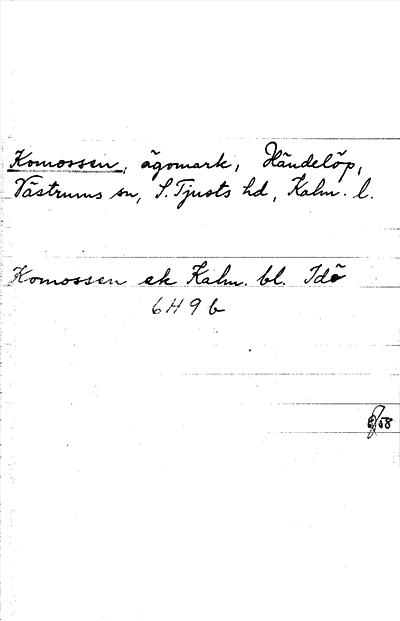 Komossen, ägomark, Händelöp,
Västrums sn, S. Tjusts hd, Kalm. l.
Komossen ek Kalm. bl. Idö
6H9b
58